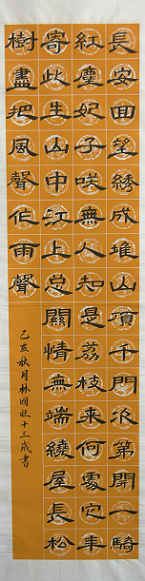 長安回望綉成堆山頂千門次第開一騎
紅塵妃子咲無人知是荔枝來何處它年
寄此生山中江上总關情無端繞屋長松
樹盡把風聲作雨聲
己亥秋月林國旺十三歲書